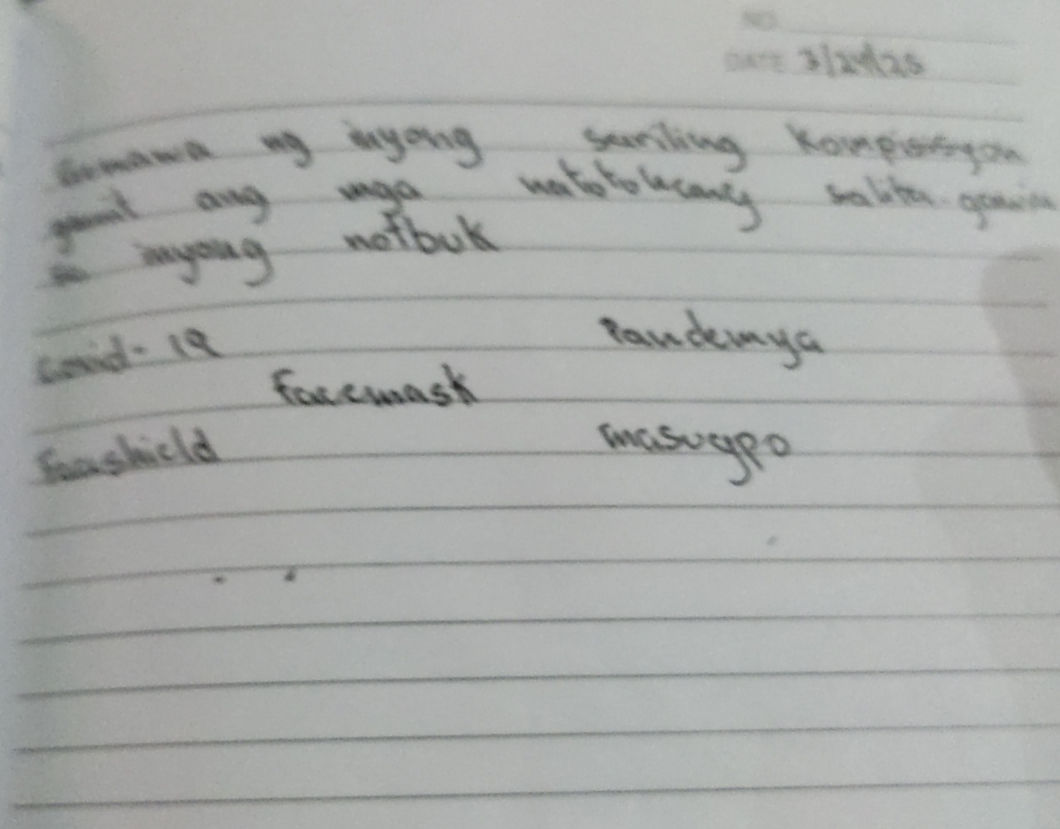 NO
DATE 3/24/25
Gumawa ng inyong sariling Komposisyon
gamit ang mga natotolecang salita. gawin
sa inyong notbuk
Covid-19 Pandemya
facemask
faceshield masugpo